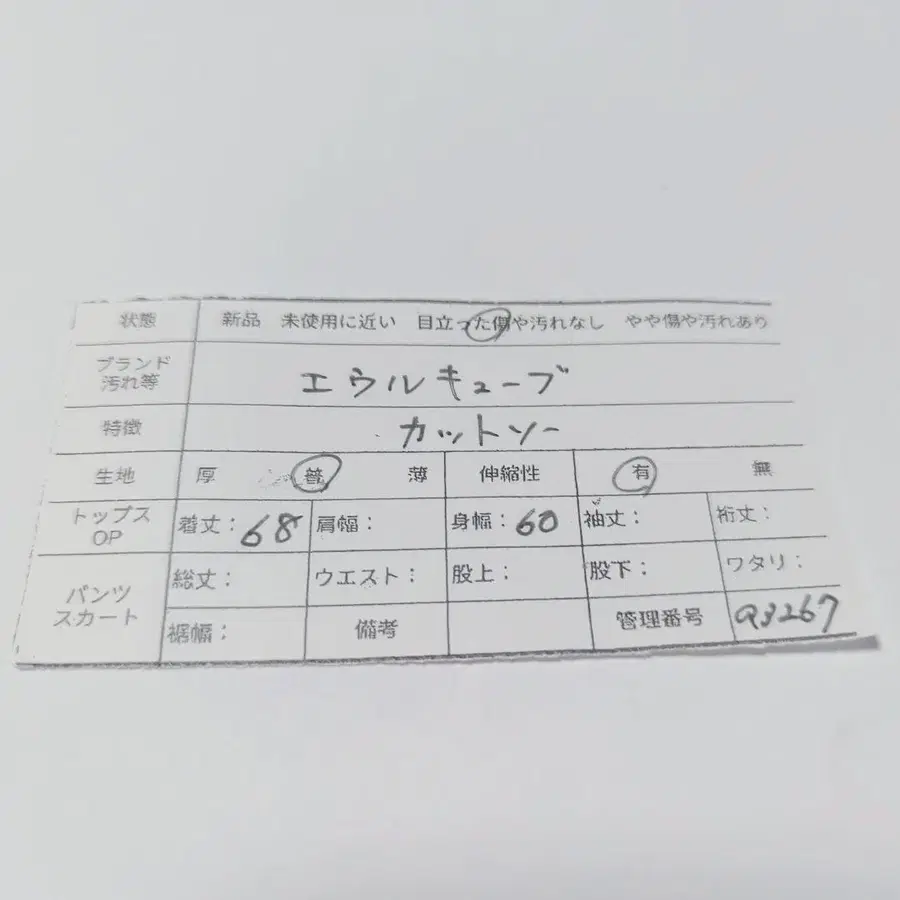 状態 新品 未使用に近い 目立った傷や汚れなし やや傷や汚れあり
ブランド
汚れ等 エウルキューブ
特徴 カットソー
生地 厚 普 薄 伸縮性 有 無
トップス
OP 着丈: 68 肩幅: 身幅: 60 袖丈: 裄丈:
パンツ
スカート 総丈: ウエスト: 股上: 股下: ワタリ:
裾幅: 備考 管理番号 a3267